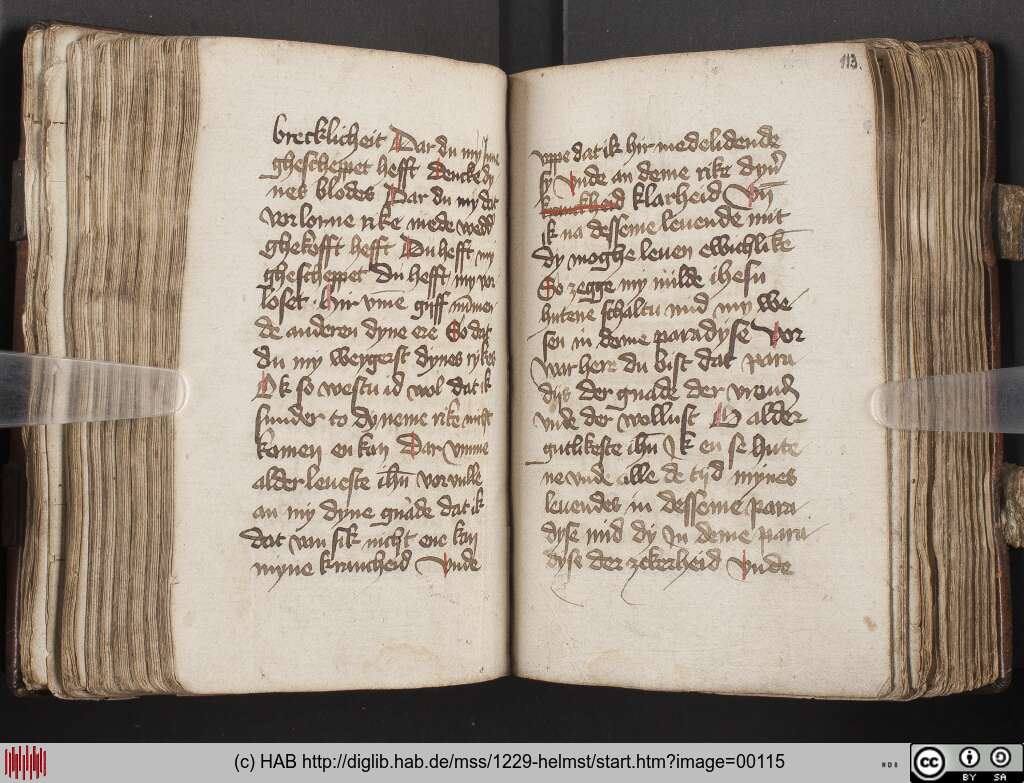 brecklicheit Dar du my
ghescheppet hefft dencke dy
nes blodes Dar du my dat
vorlorne rike mede wedd͛
ghekofft hefft Du hefft my
ghescheppet du hefft my vor
loset hir vm̄e gyff
de anderen dyne ere So dat
du my weygerst dynes rykes
Ok so westu id wol dat ik
sunder to dyneme rike nicht
kamen en kan Dar vmme
alderleueste ihū vorvulle
an my dyne gnade dat ik
dat van sik nicht ene kan
myne krancheid Vnde
113.
vppe dat ik hir medelidende
sy Vnde an deme rike dyn͛
klarheid
ik na desseme leuende mit
dy moghe leuen ewichlikē
So zegge my milde ihesu
hutene schaltu mid my we
sen in deme paradyse Vor
war here du bist dat para
dijs der gnade der vraud͛
vnde der wollust O alder
gutlikeste ihū Jk en se hute
ne vnde alle de tijd mynes
leuendes in desseme para
dyse mid dy Jn deme para
dyse der zekerheid Vnde
(c) HAB http://diglib.hab.de/mss/1229-helmst/start.htm?image=00115
WDB
cc BY SA